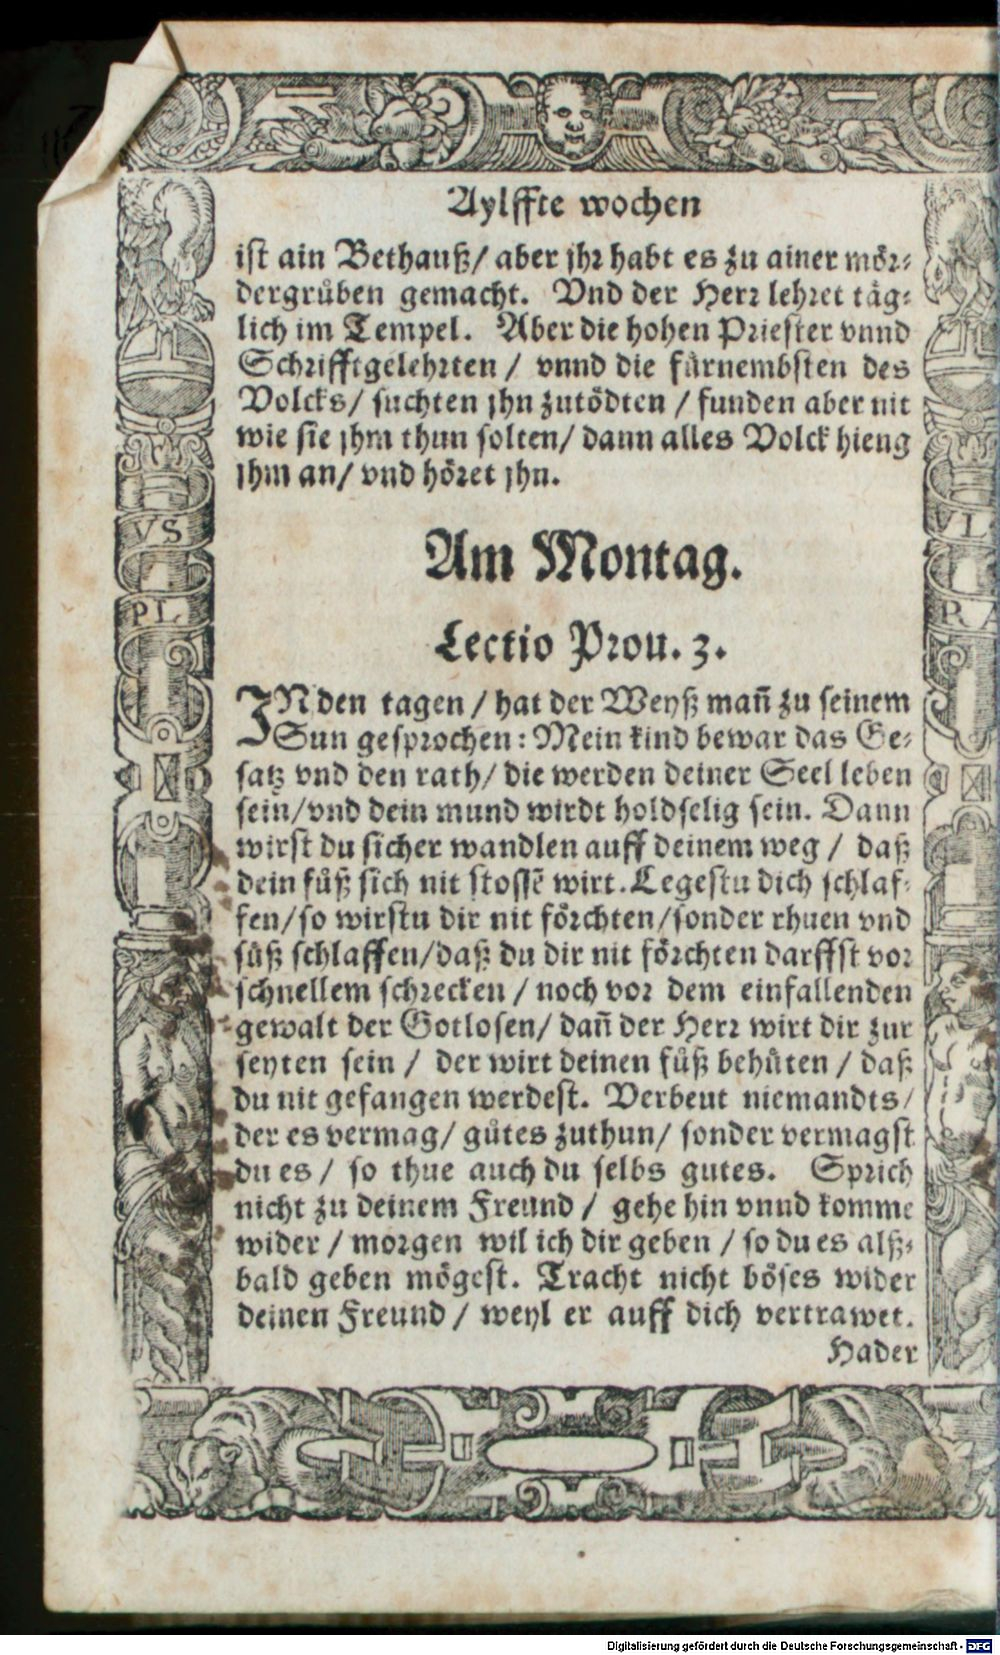 Aylffte wochen
ist ain Bethauß/ aber jhr habt es zu ainer mör⸗
dergrůben gemacht. Vnd der Herr lehret täg⸗
lich im Tempel. Aber die hohen Priester vnnd
Schrifftgelehrten / vnnd die fürnembsten des
Volcks/ suchten jhn zutödten / funden aber nit
wie sie jhm thun solten/ dann alles Volck hieng
jhm an/ vnd höret jhn.
Am Montag.
Lectio Prou. 3.
IN den tagen / hat der Weyß mañ zu seinem
Sun gesprochen: Mein kind bewar das Ge⸗
satz vnd den rath/ die werden deiner Seel leben
sein/vnd dein mund wirdt holdselig sein. Dann
wirst du sicher wandlen auff deinem weg / daß
dein fůß sich nit stossẽ wirt. Legestu dich schlaf⸗
fen/so wirstu dir nit förchten/sonder rhuen vnd
süß schlaffen/daß du dir nit förchten darffst vor
schnellem schrecken / noch vor dem einfallenden
gewalt der Gotlosen/ dañ der Herr wirt dir zur
seyten sein / der wirt deinen fůß behüten / daß
du nit gefangen werdest. Verbeut niemandts/
der es vermag/ gůtes zuthun/ sonder vermagst
du es / so thue auch du selbs gutes. Sprich
nicht zu deinem Freund / gehe hin vnnd komme
wider / morgen wil ich dir geben / so du es alß⸗
bald geben mögest. Tracht nicht böses wider
deinen Freund / weyl er auff dich vertrawet.
Hader
VS
PL
VL
RA
Digitalisierung gefördert durch die Deutsche Forschungsgemeinschaft - DFG